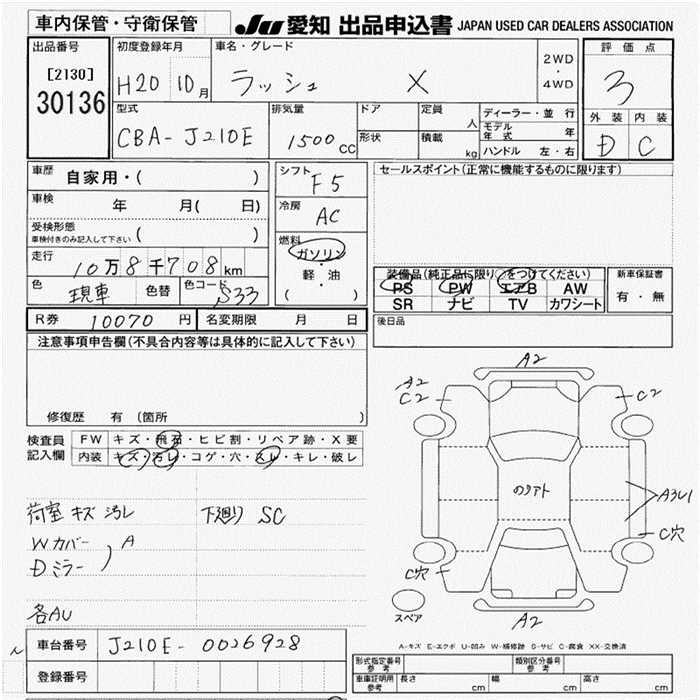 車内保管・守衛保管
JU 愛知 出品申込書 JAPAN USED CAR DEALERS ASSOCIATION
出品番号
[2130]
30136
初度登録年月
H20 10月
車名・グレード
ラッシュ X
2WD
・
4WD
評価点
3
外装 内装
D C
型式
CBA-J210E
排気量
1500 cc
ドア
形状
定員
人
積載
kg
ディーラー・並行
モデル年式 年
ハンドル 左・右
車歴 自家用・( )
車検 年 月( 日)
受検形態
車検付きのみ記入して下さい ( )
走行 10万8千708km
色 現車 色替 色コード S33
シフト
F5
冷房
AC
燃料
ガソリン
軽・油
( )
セールスポイント(正常に機能するものに限ります)
装備品(純正品に限り○をつけてください)
PS PW エアB AW
SR ナビ TV カワシート
新車保証書
有・無
後日品
R券 10070 円 名変期限 月 日
注意事項申告欄(不具合内容等は具体的に記入して下さい)
修復歴 有 (箇所 )
検査員記入欄
FW キズ・飛石・ヒビ割・リペア跡・X要
内装 キズ・汚レ・コゲ・穴・スレ・キレ・破レ
荷室 キズ 汚レ 下廻り SC
Wカバー
Dミラー ) A
各AU
A2
A2
C2
C2
のりアト
A3U1
C穴
C穴
スペア
A2
A-キズ E-エクボ U-凹み W-補修跡 S-サビ C-腐食 XX-交換済
車台番号 J210E-0026928
登録番号
型式指定番号
参考
類別区分番号
参考
車庫証明用
参考
長さ cm 幅 cm 高さ cm